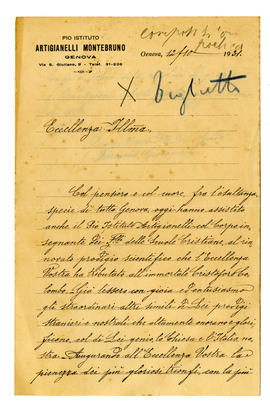 PIO ISTITUTO
ARTIGIANELLI MONTEBRUNO
GENOVA
Via S. Giuliano, 2 - Telef. 31-206
Genova, 12/10 1931.
X Biglietto
Eccellenza Illma,
Col pensiero e col cuore fra l'esultanza,
specie di tutta Genova, oggi hanno assistito
anche il Pio Istituto Artigianelli ed Corpo in,
segnante dei Flli delle Scuole Cristiane, al rin
novato prodigio scientifico che l'Eccellenza
Vostra ha tributato all'immortale Cristoforo Co,
lombo. Già lessero con gioia e l'entusiasmo
gli straordinari altri simili di Lei prodigi
stranieri e nostrali che altamente onorano e glori,
ficano, col di Lei genio, la Chiesa e l'Italia no,
stra. Augurando all'Eccellenza Vostra la
pienezza dei più gloriosi trionfi, con la più